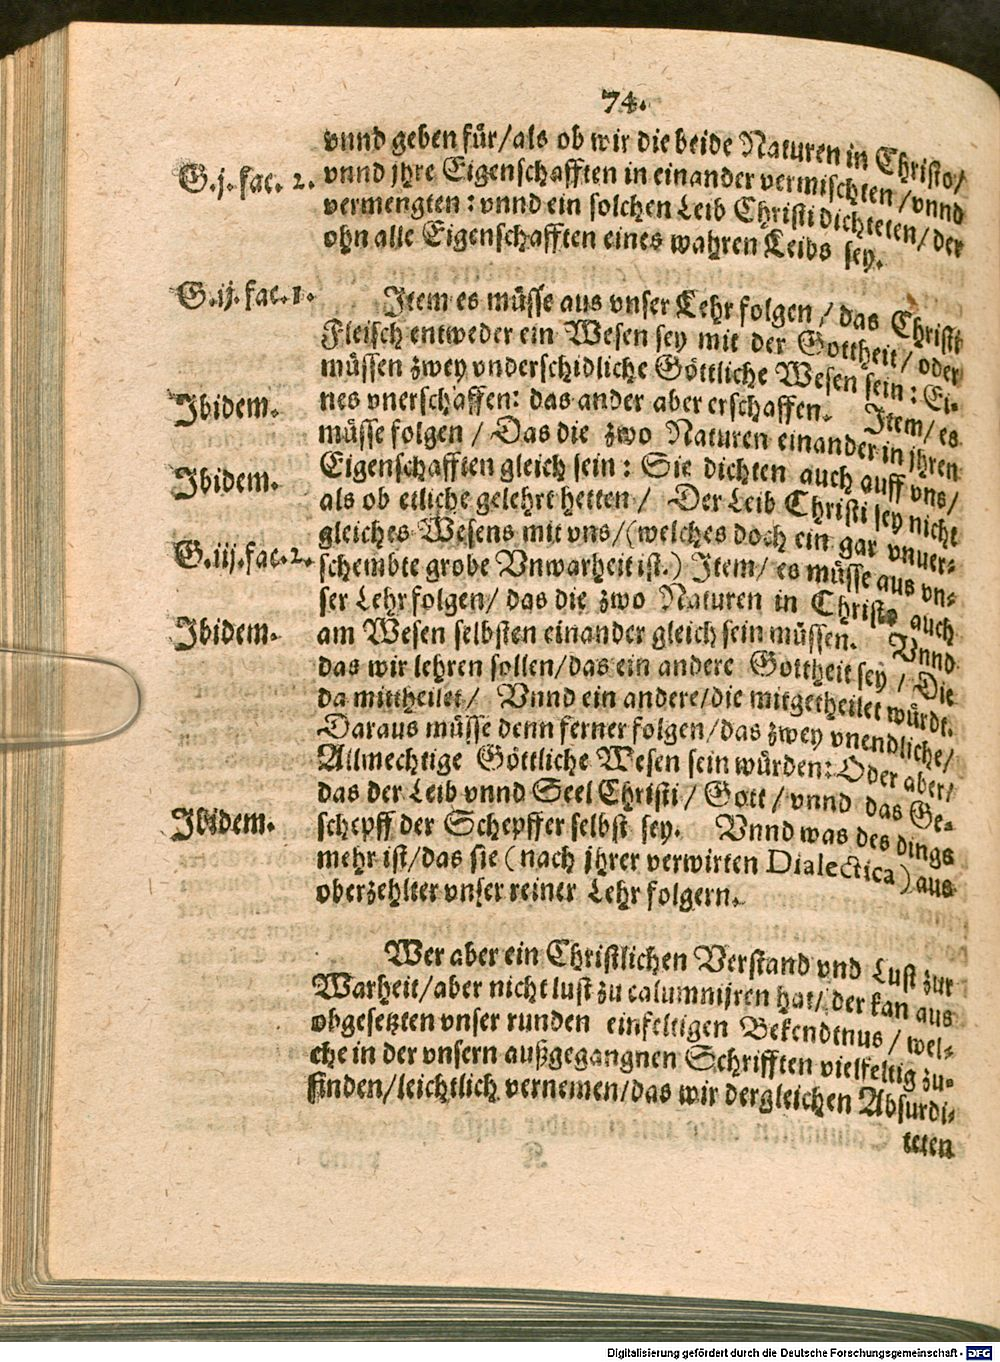 74.
vnnd geben für/als ob wir die beide Naturen in Christo/
G.j.fac.2.
vnnd jhre Eigenschafften in einander vermischten/vnnd
vermengten: vnnd ein solchen Leib Christi dichteten/der
ohn alle Eigenschafften eines wahren Leibs sey.
G.ij.fac.1.
Item es müsse aus vnser Lehr folgen / das Christi
Fleisch entweder ein Wesen sey mit der Gottheit/oder
müssen zwey vnderschidliche Göttliche Wesen sein: Ei-
Ibidem.
nes vnerschaffen: das ander aber erschaffen. Item/es
müsse folgen / Das die zwo Naturen einander in jhren
Ibidem.
Eigenschafften gleich sein: Sie dichten auch auff vns/
als ob etliche gelehrt hetten / Der Leib Christi sey nicht
gleiches Wesens mit vns/(welches doch ein gar vnuer-
G.iij.fac.2.
schembte grobe Vnwarheit ist.) Item/ es müsse aus vn-
ser Lehr folgen/ das die zwo Naturen in Christo auch
Ibidem.
am Wesen selbsten einander gleich sein müssen. Vnnd
das wir lehren sollen/das ein andere Gottheit sey / Die
da mittheilet/ Vnnd ein andere/die mitgetheilet würdt.
Daraus müsse denn ferner folgen/das zwey vnendliche/
Allmechtige Göttliche Wesen sein würden: Oder aber/
das der Leib vnnd Seel Christi / Gott / vnnd das Ge-
Ibidem.
schepff der Schepffer selbst sey. Vnnd was des dings
mehr ist/das sie (nach jhrer verwirten Dialectica) aus
oberzehlter vnser reiner Lehr folgern.
Wer aber ein Christlichen Verstand vnd Lust zur
Warheit/aber nicht lust zu calummijren hat/ der kan aus
obgesetzten vnser runden einfeltigen Bekendtnus / wel-
che in der vnsern außgegangnen Schrifften vielfeltig zu-
finden/leichtlich vernemen/das wir dergleichen Absurdi-
teten
Digitalisierung gefördert durch die Deutsche Forschungsgemeinschaft - DFG